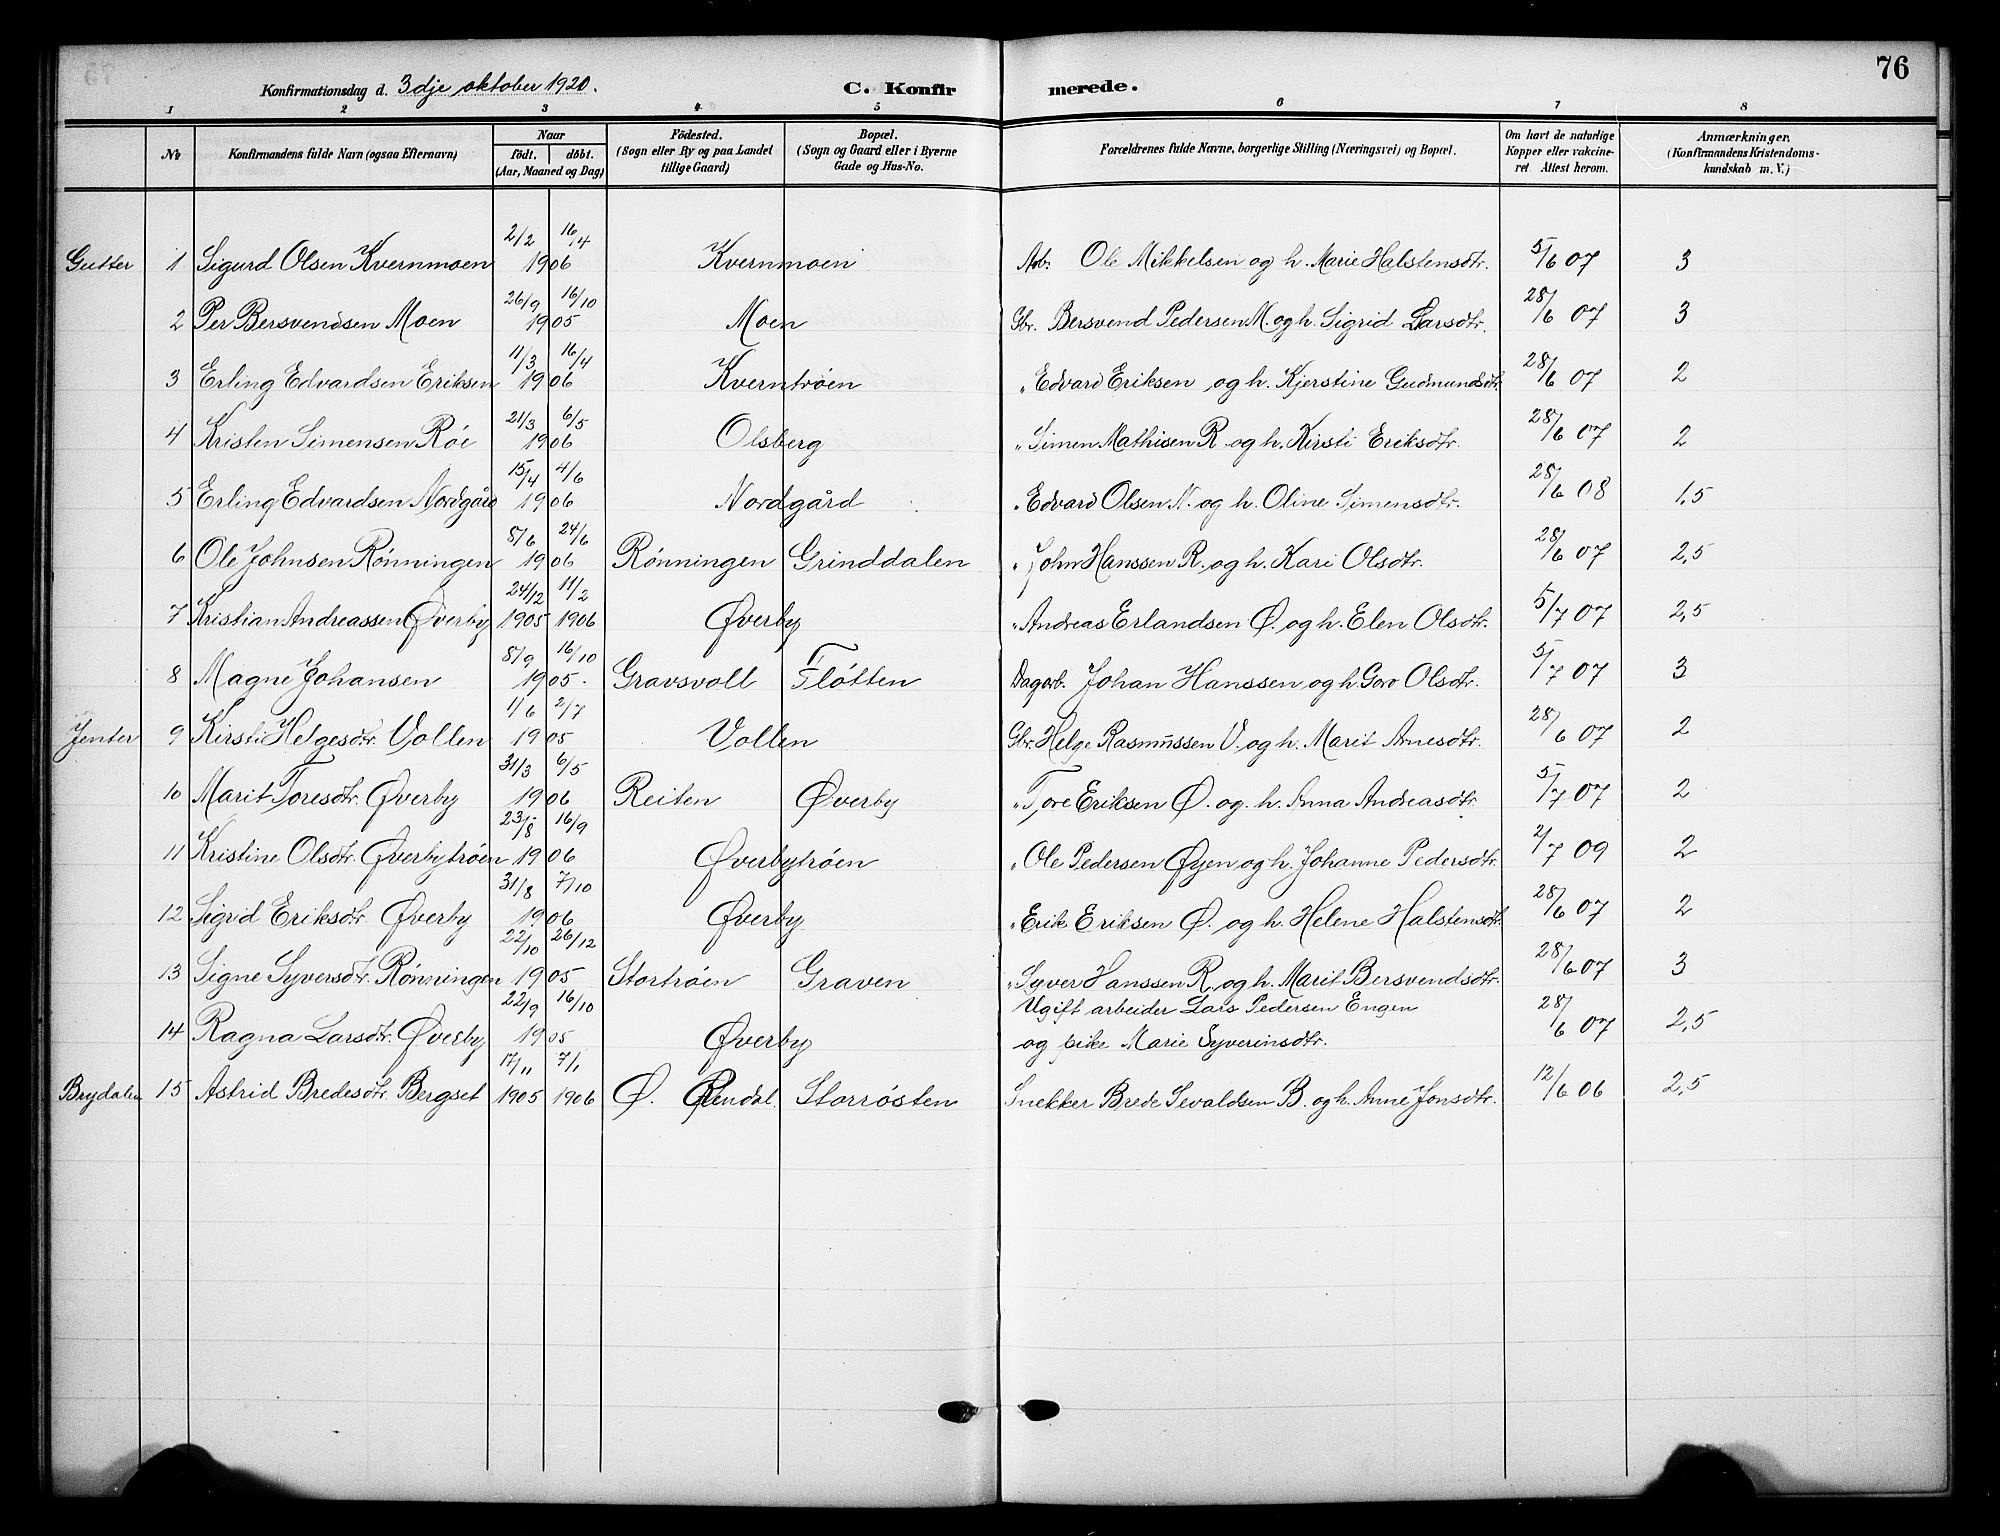 76
Konfirmationsdag d. 3dje oktober 1920. C. Konfirmerede.
1 2 3 4 5 6 7 8
№ Konfirmandens fulde Navn (ogsaa Efternavn) Naar födt. döbt. (Aar, Maaned og Dag) Födested. (Sogn eller By og paa Landet tillige Gaard) Bopæl. (Sogn og Gaard eller i Byerne Gade og Hus-No. Forældrenes fulde Navne, borgerlige Stilling (Næringsvei) og Bopæl. Om havt de naturlige Kopper eller vakcineret. Attest herom. Anmærkninger, (Konfirmandens Kristendomskundskab m. V.)
Gutter 1 Sigurd Olsen Kvernmoen 2/2 16/4 1906 Kvernmoen Arb. Ole Mikkelsen og h. Marie Halstensdtr. 5/6 07 3
2 Per Bersvendsen Moen 26/9 16/10 1905 Moen Gbr. Bersvend Pedersen M. og h. Sigrid Larsdtr. 28/6 07 3
3 Erling Edvardsen Eriksen 11/3 16/4 1906 Kverntrøen " Edvard Eriksen og h. Kjerstine Gudmundsdtr. 28/6 07 2
4 Kristen Simensen Røe 21/3 6/5 1906 Olsberg " Simen Mathisen R. og h. Kirsti Eriksdtr. 28/6 07 2
5 Erling Edvardsen Nordgård 15/4 4/6 1906 Nordgård " Edvard Olsen N. og h. Oline Simensdtr. 28/6 08 1,5
6 Ole Johnsen Rønningen 8/6 24/6 1906 Rønningen Grinddalen " John Hanssen R. og h. Kari Olsdtr. 28/6 07 2,5
7 Kristian Andreassen Øverby 24/12 1905 11/2 1906 Øverby " Andreas Erlandsen Ø. og h. Elen Olsdtr. 5/7 07 2,5
8 Magne Johansen 8/9 16/10 1905. Gravsvoll Fløtten Dagarb. Johan Hanssen og h. Goro Olsdtr. 5/7 07 3
Jenter 9 Kirsti Helgesdtr. Vollen 1/6 2/7 1905 Vollen Gbr. Helge Rasmussen V. og h. Marit Arnesdtr. 28/6 07 2
10 Marit Toresdtr. Øverby 31/3 6/5 1906 Reiten Øverby " Tore Eriksen Ø. og h. Anna Andreasdtr. 5/7 07 2
11 Kristine Olsdtr. Øverbytrøen 23/8 16/9 1906 Øverbytrøen " Ole Pedersen Øyen og h. Johanne Pedersdtr. 2/7 09 2
12 Sigrid Eriksdtr. Øverby 31/8 7/10 1906 Øverby " Erik Eriksen Ø. og h. Helene Halstensdtr. 28/6 07 2
13 Signe Syversdtr. Rønningen 22/10 26/12 1905 Stortrøen Graven " Syver Hanssen R. og h. Marit Bersvendsdtr. 28/6 07 3
14 Ragna Larsdtr. Øverby 22/9 16/10 1905 Øverby Ugift arbeider Lars Pedersen Engen 28/6 07 2,5
og pike Marie Syverinsdtr.
Brydalen 15 Astrid Bredesdtr. Bergset 17/11 1905 7/1 1906 Ø. Rendal. Storrøsten Snekker Brede Sevaldsen B. og h. Anne Jonsdtr. 12/6 06 2,5